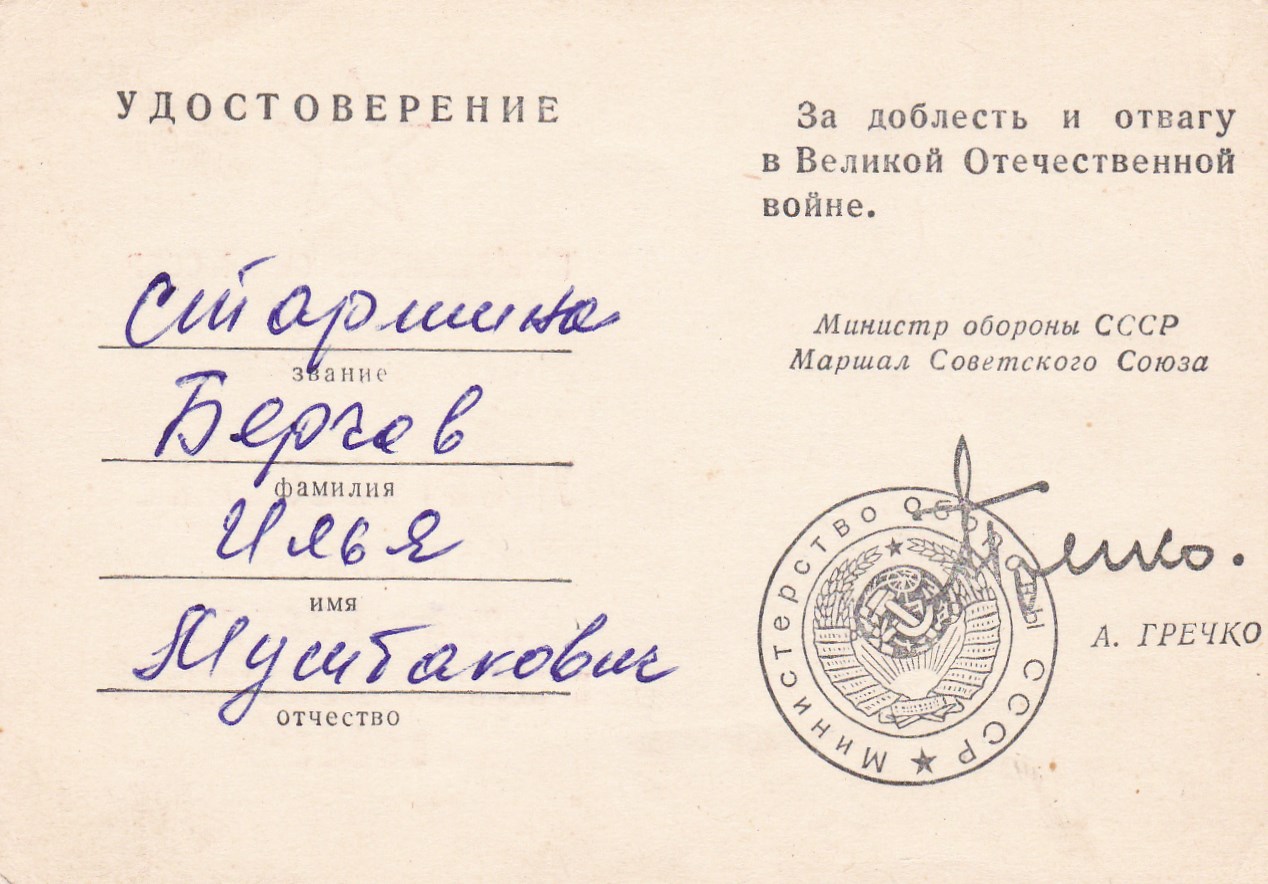 УДОСТОВЕРЕНИЕ
старшина
звание
Бергов
фамилия
Илья
имя
Муштакович
отчество
За доблесть и отвагу
в Великой Отечественной
войне.
Министр обороны СССР
Маршал Советского Союза
А. ГРЕЧКО
Министерство Обороны СССР